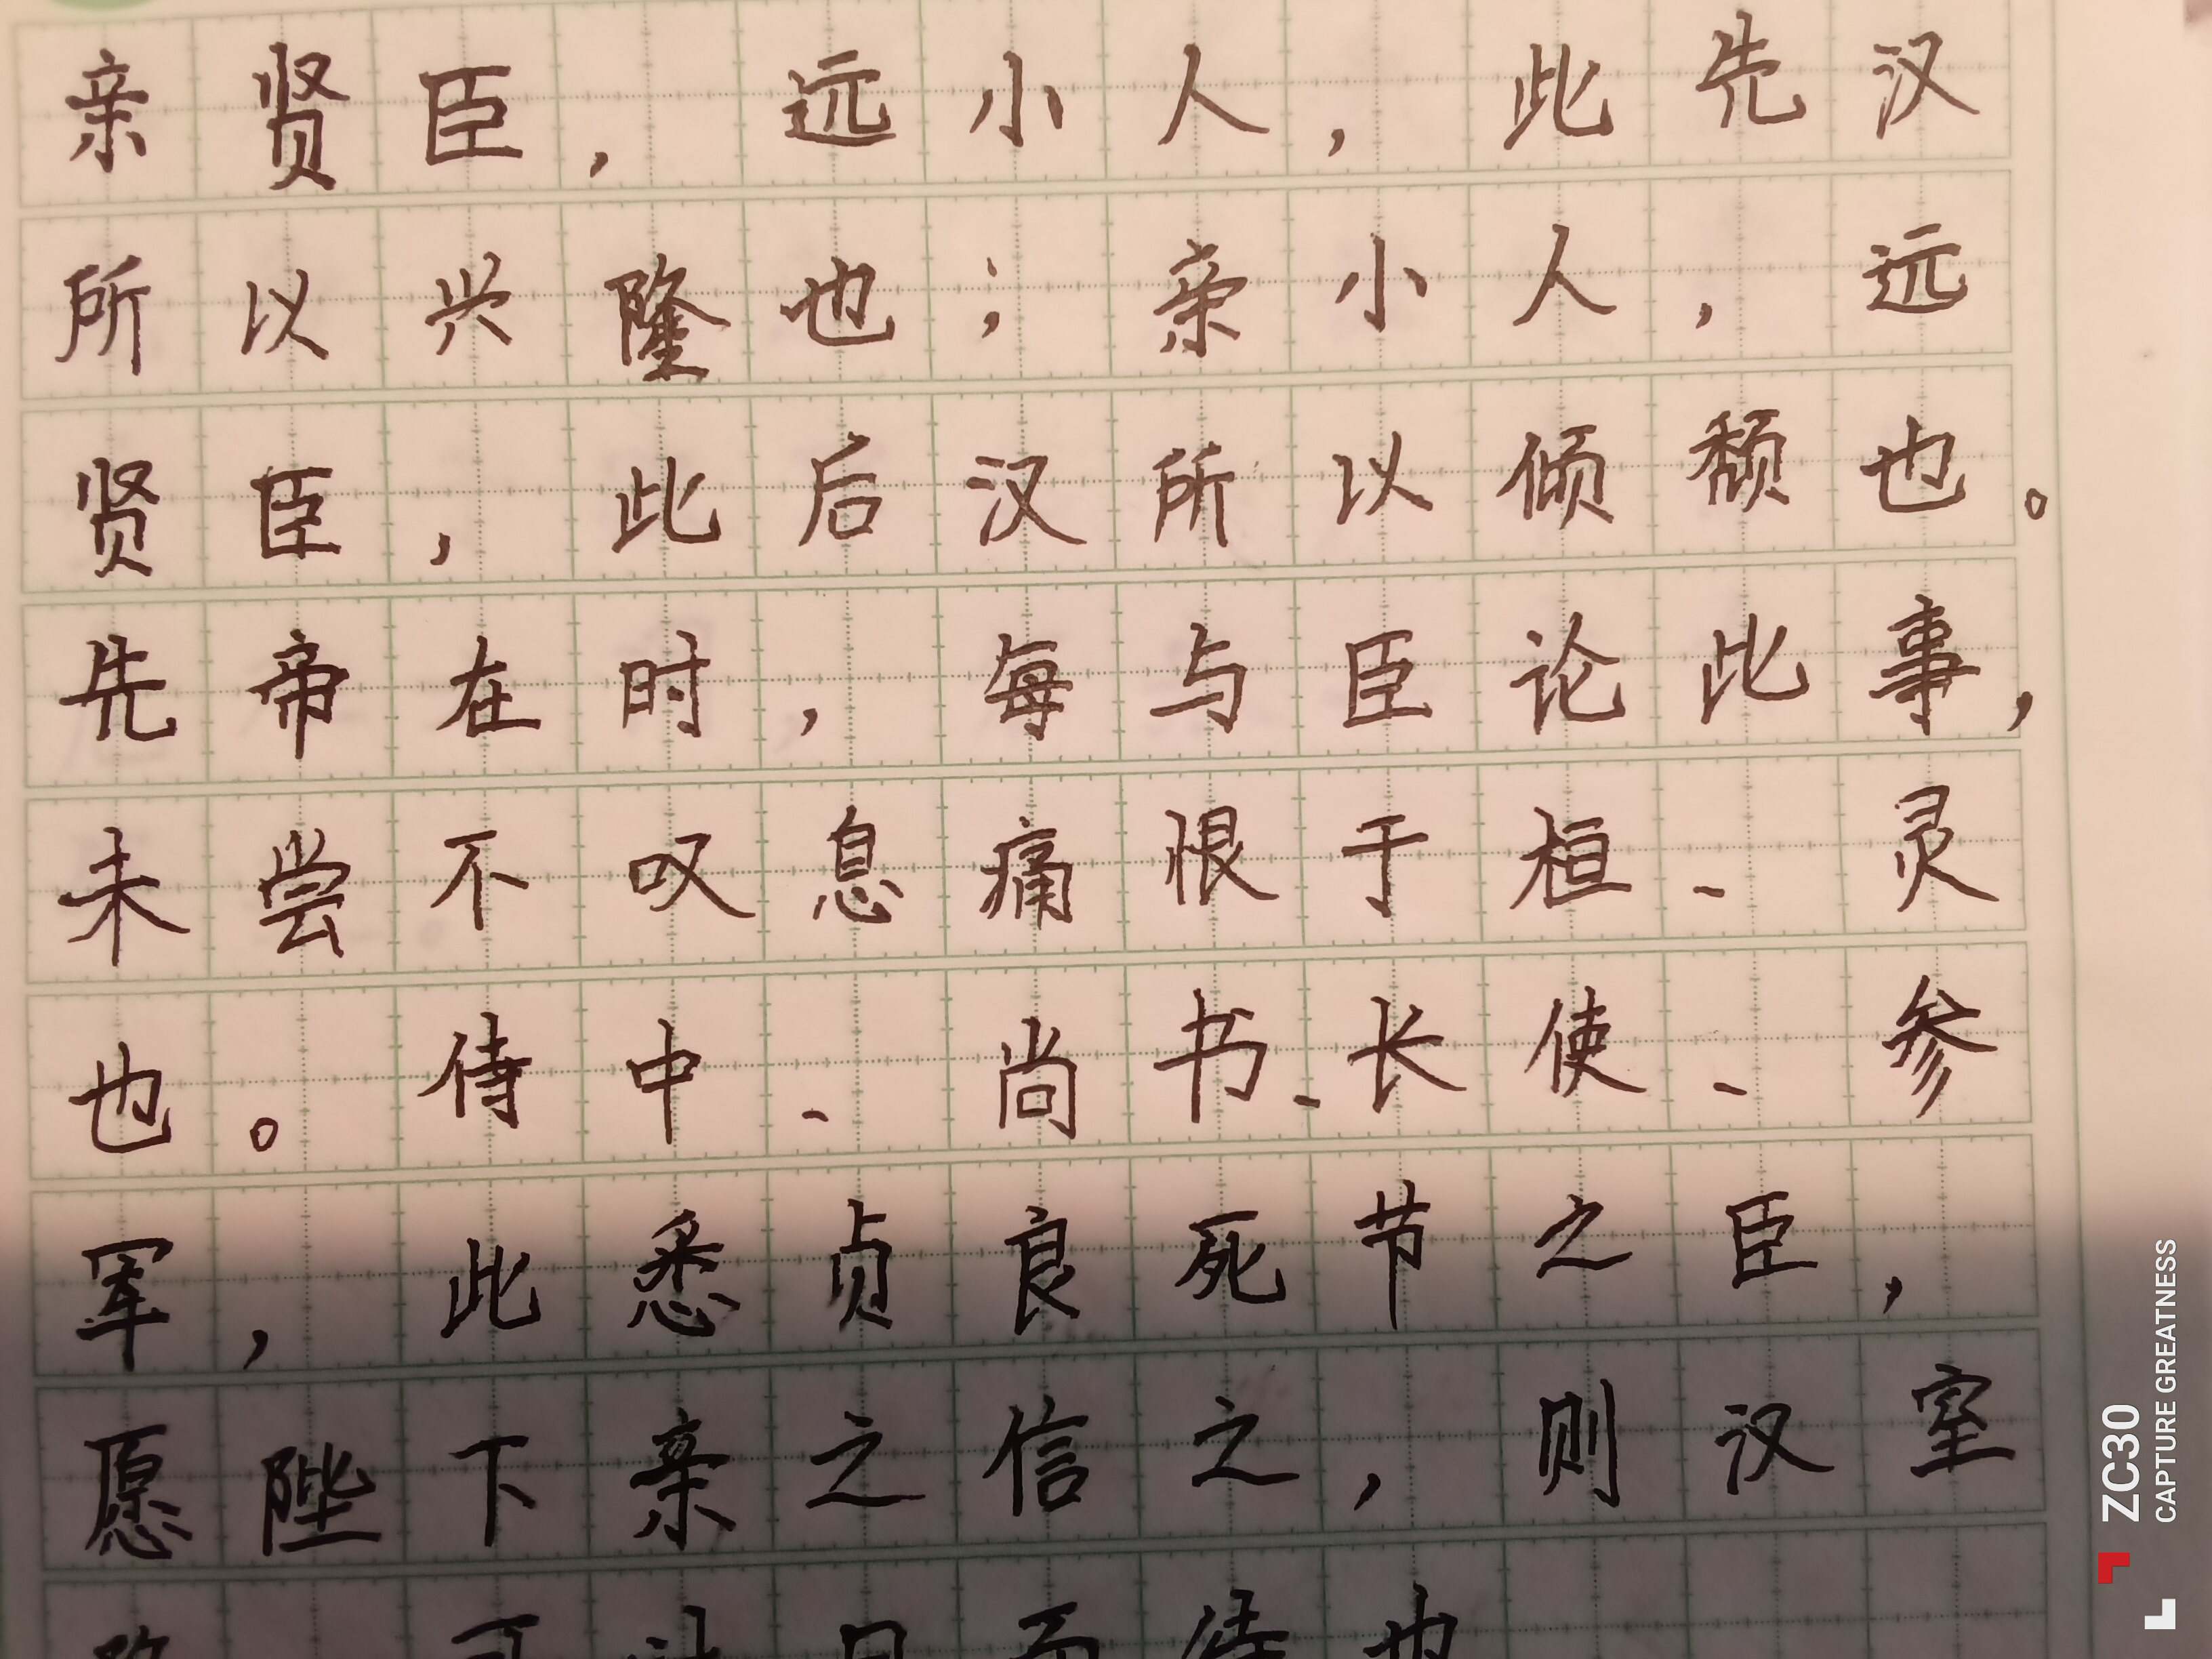 亲贤臣，远小人，此先汉
所以兴隆也；亲小人，远
贤臣，此后汉所以倾颓也。
先帝在时，每与臣论此事，
未尝不叹息痛恨于桓、灵
也。侍中、尚书、长使、参
军，此悉贞良死节之臣，
愿陛下亲之信之，则汉室
可计日而待也
ZC30
CAPTURE GREATNESS